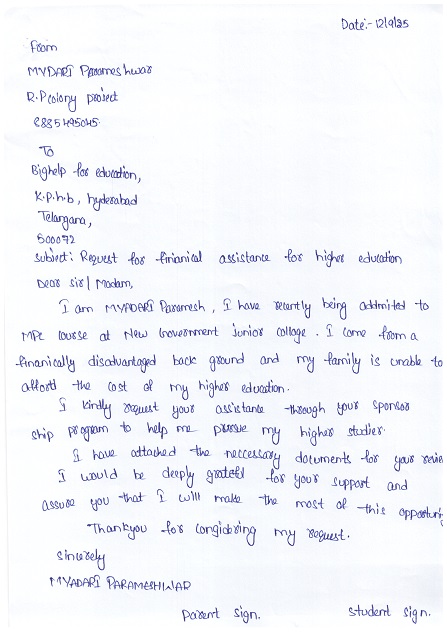 Date:- 12/9/25
From
MYDARI Parameshwar
R.P colony project
8885495045.
To
Bighelp for education,
K.p.h.b, hyderabad
Telangana,
500072
subject: Request for finianical assistance for higher education
Dear sir/ Madam,
I am MYADARI Paramesh, I have recently being addmited to
MPC course at New Government junior collage. I come from a
finanically disadvantaged back ground and my family is unable to
afford the cost of my higher education.
I kindly request your assistance through your sponsor
ship program to help me pursue my higher studies.
I have attached the neccessary documents for your review
I would be deeply grateful for your support and
assure you that I will make the most of this opportunity
Thankyou for congidering my request.
sincerely
MYADARI PARAMESHWAR
parent sign. student sign.